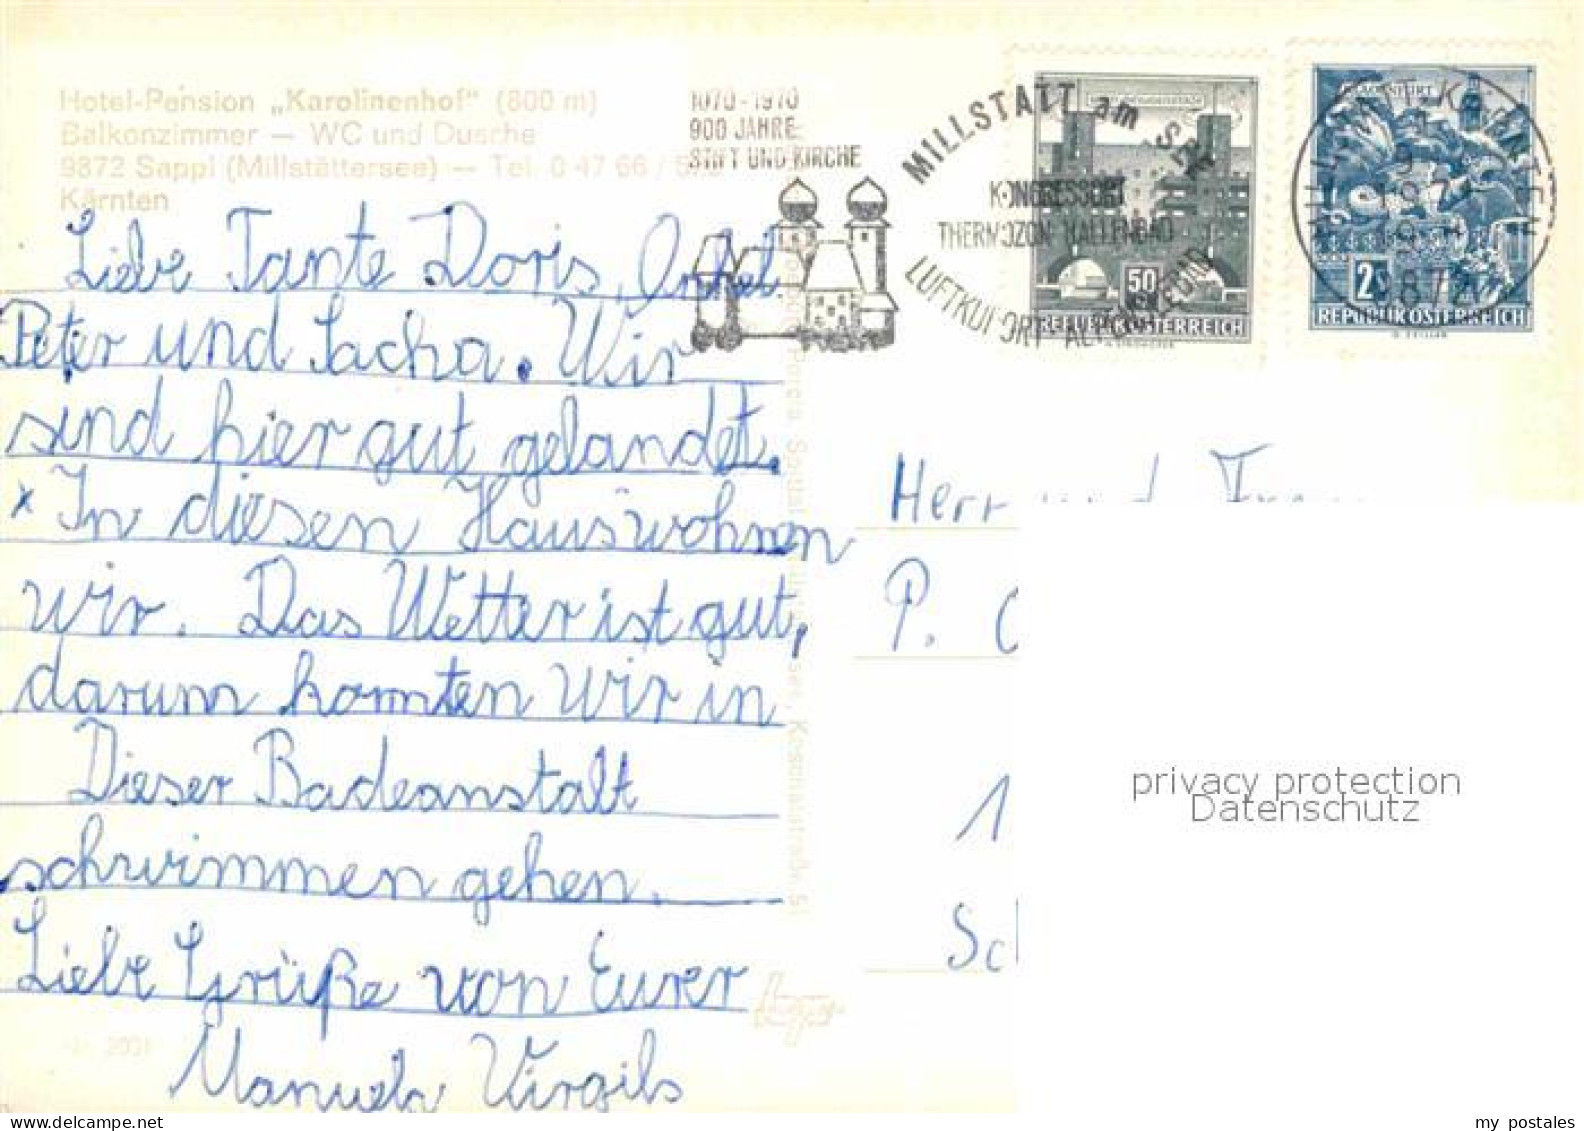 Hotel-Pension „Karolinenhof" (800 m)
Balkonzimmer — WC und Dusche
9872 Sappl (Millstättersee) — Tel. 0 47 66 /
Kärnten
1070-1970
900 JAHRE
STIFT UND KIRCHE
MILLSTATT am SEE
KONGRESSORT
THERMOZON HALLENBAD
LUFTKURORT
50
REPUBLIK ÖSTERREICH
KLAGENFURT
2S
REPUBLIK ÖSTERREICH
9872
Liebe Tante Doris, Onkel
Peter und Sacha. Wir
sind hier gut gelandet.
x In diesen Haus wohnen
wir. Das Wetter ist gut,
darum konnten wir in
Dieser Badeanstalt
schwimmen gehen.
Liebe Grüße von Eurer
Manuela Virgils
Herr und Frau
P.
1
Sc
privacy protection
Datenschutz
my postales